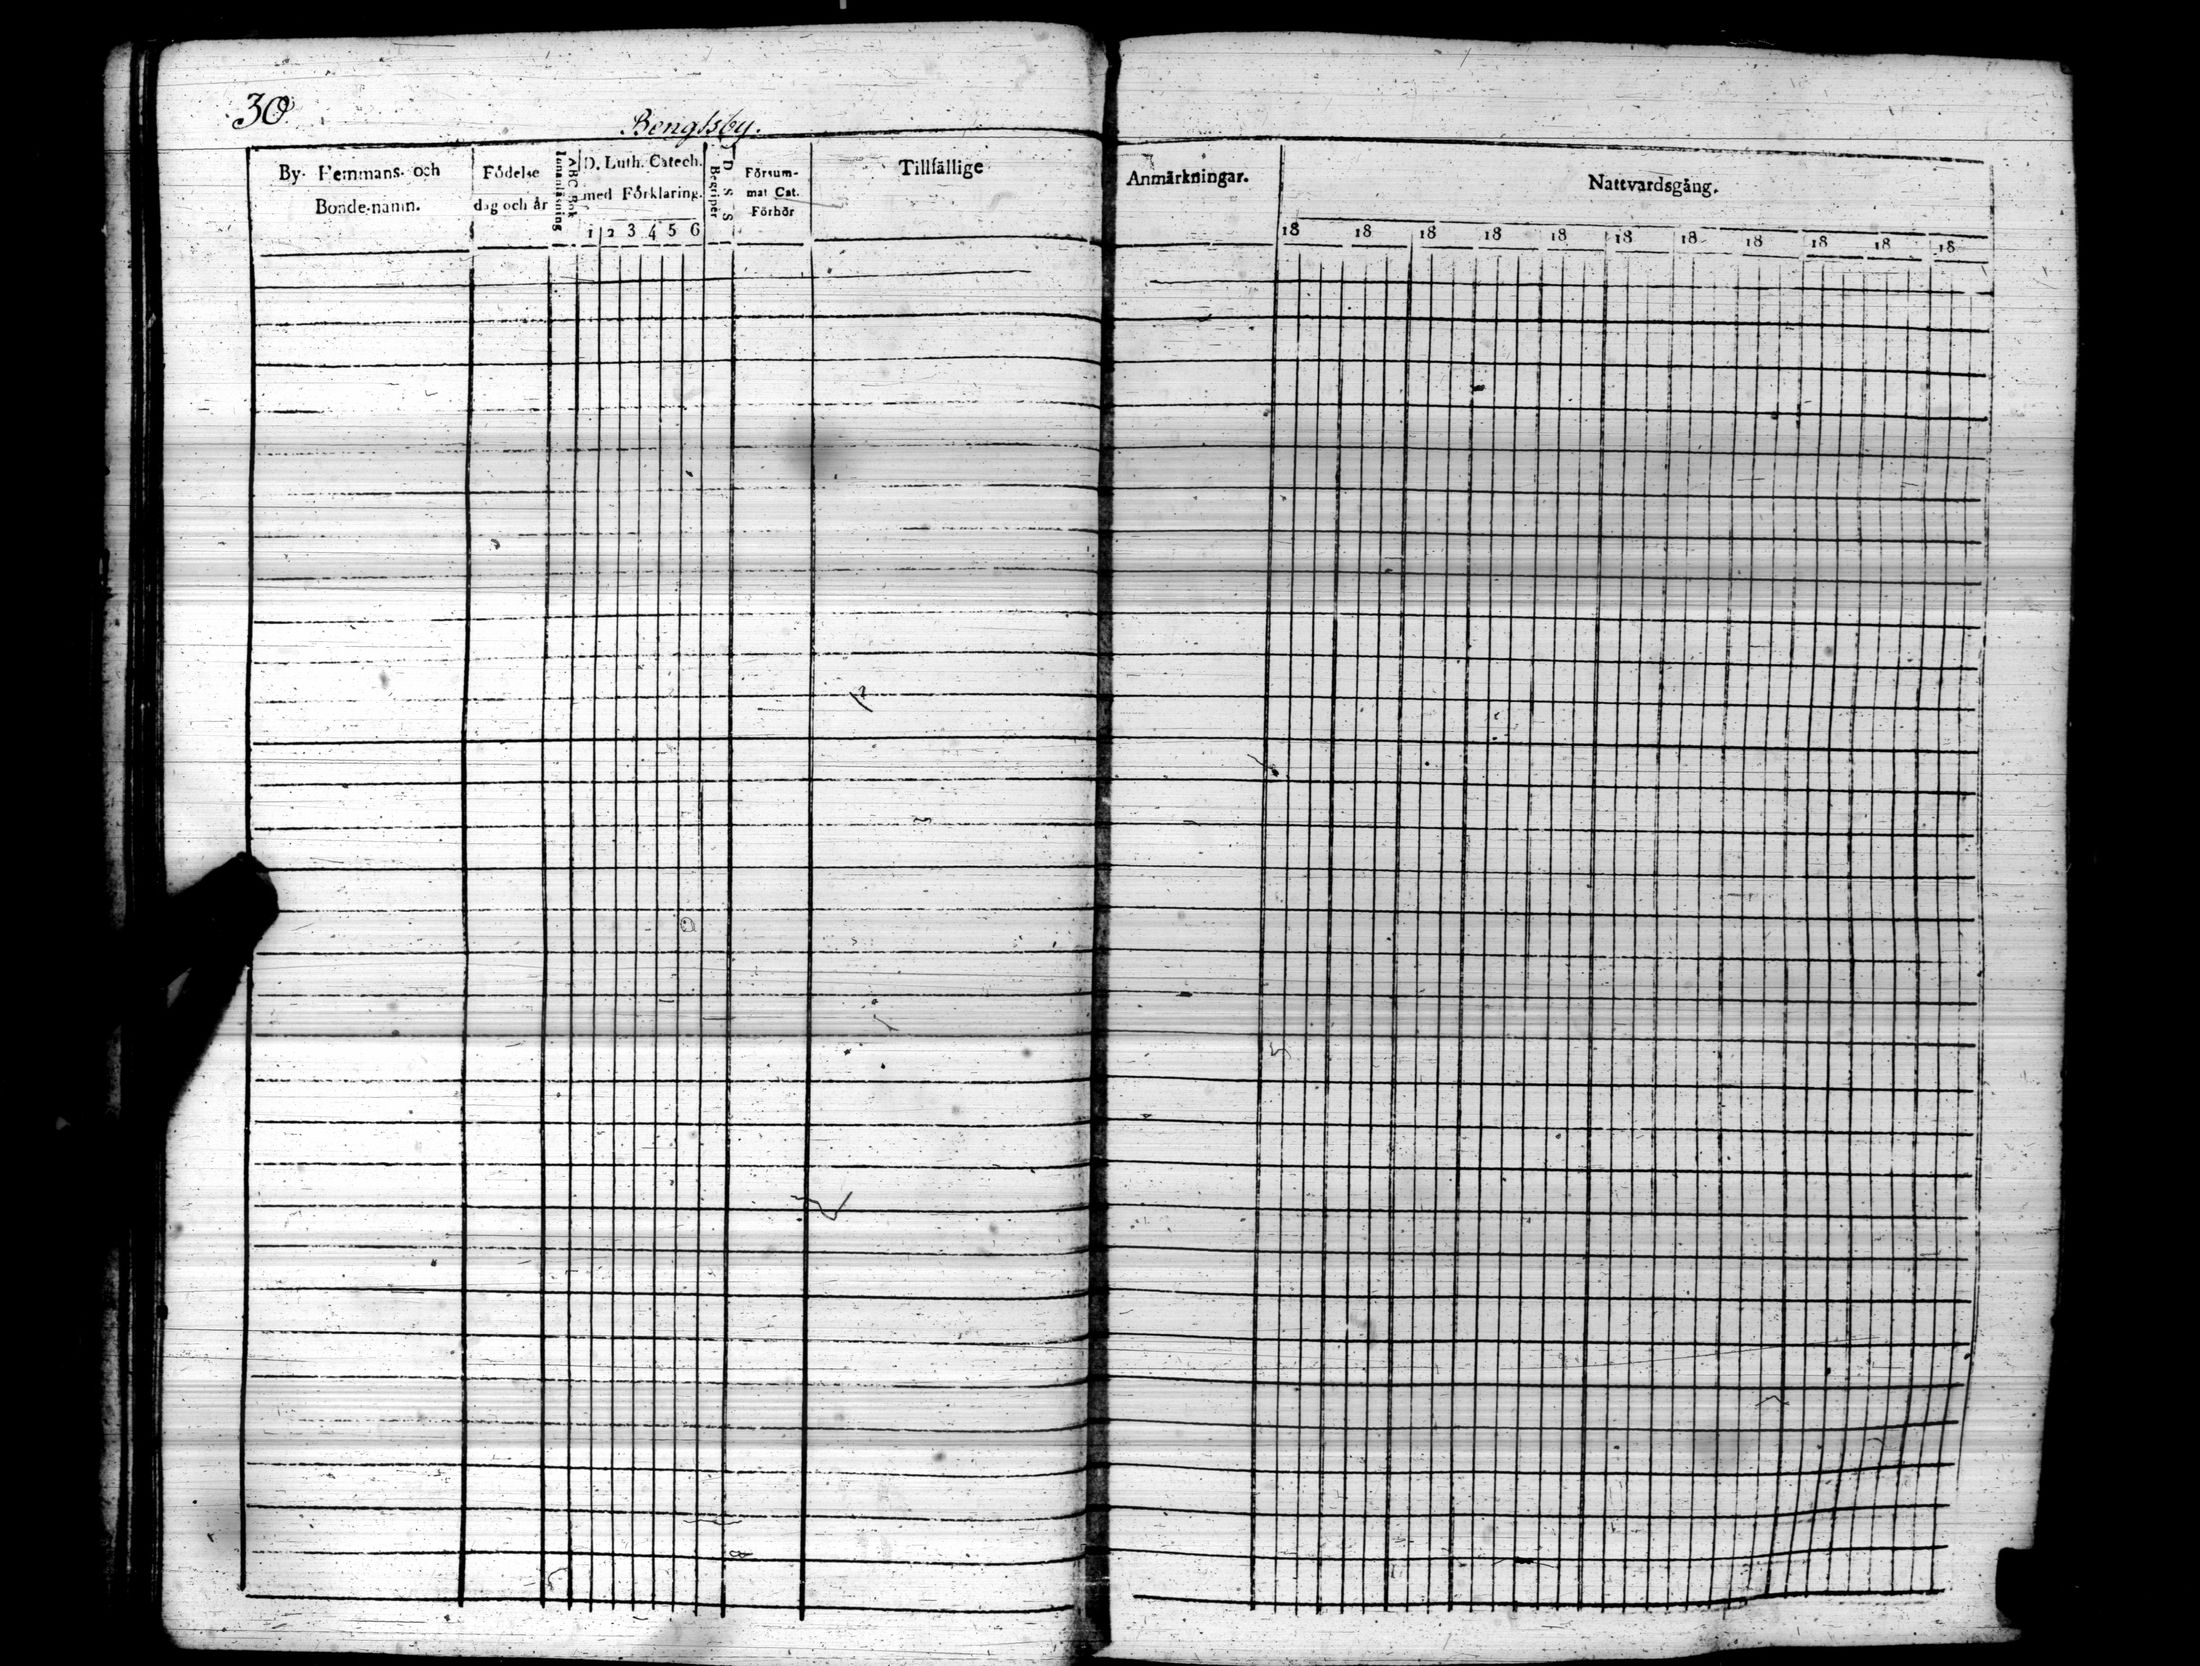 30
Bengtsby.
By- Hemmans- och
Bonde-namn.
Födelse
dag och år
Innanläsning
ABC Bok
D. Luth. Catech.
med Förklaring.
1 2 3 4 5 6
Begriper
D S S
Försum-
mat Cat.
Förhör
Tillfällige
Anmärkningar.
Nattvardsgång.
18 18 18 18 18 18 18 18 18 18 18